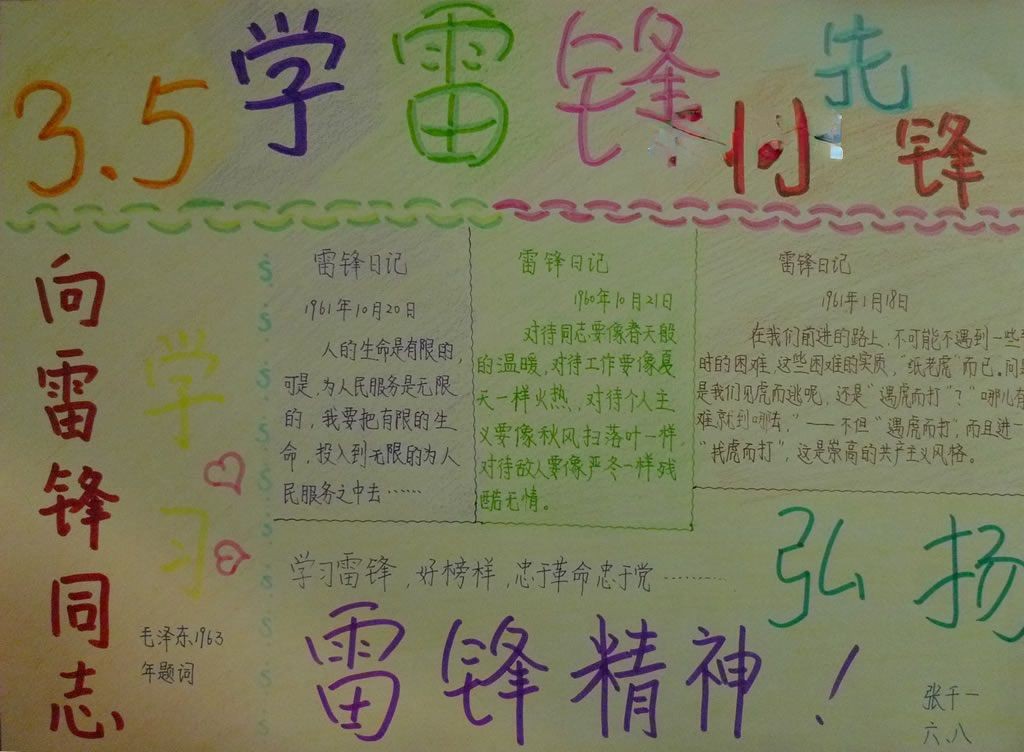 3.5学雷锋
先锋
向雷锋同志
学习
毛泽东1963
年题词
雷锋日记
1961年10月20日
人的生命是有限的,
可是,为人民服务是无限
的,我要把有限的生
命,投入到无限的为人
民服务之中去……
雷锋日记
1960年10月21日
对待同志要像春天般
的温暖,对待工作要像夏
天一样火热,对待个人主
义要像秋风扫落叶一样,
对待敌人要像严冬一样残
酷无情。
雷锋日记
1961年1月18日
在我们前进的路上,不可能不遇到一些
时的困难,这些困难的实质,“纸老虎”而已。问
是我们见虎而逃呢,还是“遇虎而打”?“哪儿有
难就到哪去,”——不但“遇虎而打”,而且进一
“找虎而打”,这是崇高的共产主义风格。
学习雷锋,好榜样,忠于革命忠于党………
弘扬
雷锋精神!
张干一
六、八